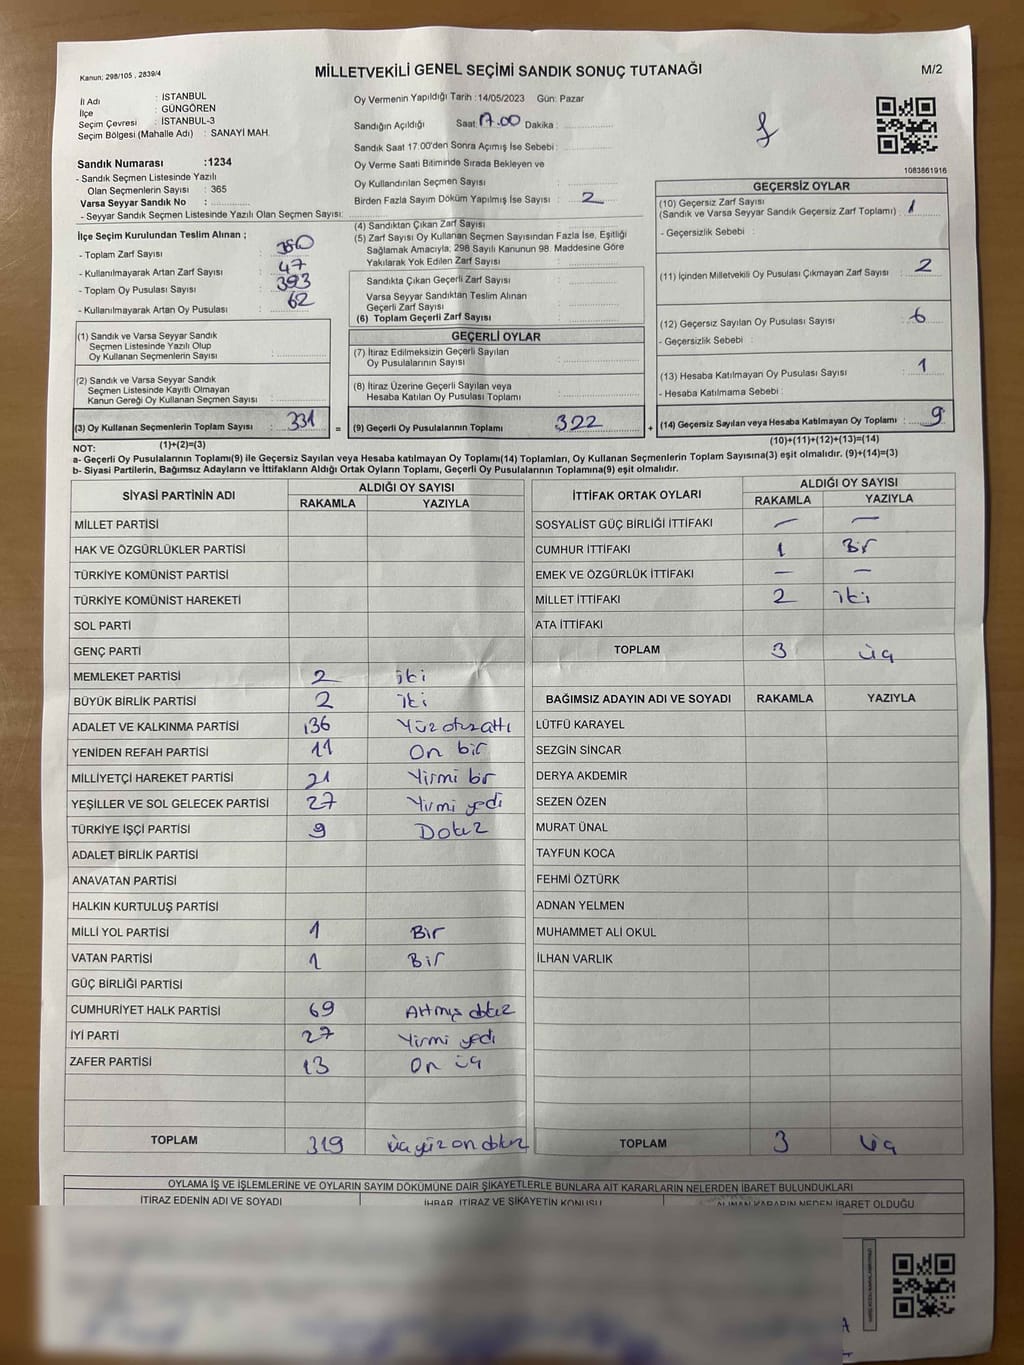 Kanun; 298/105 , 2839/4
MİLLETVEKİLİ GENEL SEÇİMİ SANDIK SONUÇ TUTANAĞI
M/2
İl Adı : İSTANBUL
İlçe : GÜNGÖREN
Seçim Çevresi : İSTANBUL-3
Seçim Bölgesi (Mahalle Adı) : SANAYİ MAH.
Sandık Numarası :1234
- Sandık Seçmen Listesinde Yazılı
Olan Seçmenlerin Sayısı : 365
Varsa Seyyar Sandık No :
- Seyyar Sandık Seçmen Listesinde Yazılı Olan Seçmen Sayısı:
İlçe Seçim Kurulundan Teslim Alınan ;
- Toplam Zarf Sayısı : 380
- Kullanılmayarak Artan Zarf Sayısı : 47
- Toplam Oy Pusulası Sayısı : 393
- Kullanılmayarak Artan Oy Pusulası : 62
(1) Sandık ve Varsa Seyyar Sandık
Seçmen Listesinde Yazılı Olup
Oy Kullanan Seçmenlerin Sayısı :
(2) Sandık ve Varsa Seyyar Sandık
Seçmen Listesinde Kayıtlı Olmayan
Kanun Gereği Oy Kullanan Seçmen Sayısı :
(3) Oy Kullanan Seçmenlerin Toplam Sayısı : 331 =
(1)+(2)=(3)
Oy Vermenin Yapıldığı Tarih :14/05/2023 Gün: Pazar
Sandığın Açıldığı Saat: 17.00 Dakika :
Sandık Saat 17:00'den Sonra Açımış İse Sebebi :
Oy Verme Saati Bitiminde Sırada Bekleyen ve
Oy Kullandırılan Seçmen Sayısı :
Birden Fazla Sayım Döküm Yapılmış İse Sayısı : 2
(4) Sandıktan Çıkan Zarf Sayısı :
(5) Zarf Sayısı Oy Kullanan Seçmen Sayısından Fazla İse, Eşitliği
Sağlamak Amacıyla, 298 Sayılı Kanunun 98. Maddesine Göre
Yakılarak Yok Edilen Zarf Sayısı :
Sandıkta Çıkan Geçerli Zarf Sayısı :
Varsa Seyyar Sandıktan Teslim Alınan
Geçerli Zarf Sayısı :
(6) Toplam Geçerli Zarf Sayısı :
GEÇERLİ OYLAR
(7) İtiraz Edilmeksizin Geçerli Sayılan
Oy Pusulalarının Sayısı :
(8) İtiraz Üzerine Geçerli Sayılan veya
Hesaba Katılan Oy Pusulası Toplamı :
(9) Geçerli Oy Pusulalarının Toplamı : 322 +
1083861916
GEÇERSİZ OYLAR
(10) Geçersiz Zarf Sayısı : 1
(Sandık ve Varsa Seyyar Sandık Geçersiz Zarf Toplamı)
- Geçersizlik Sebebi :
(11) İçinden Milletvekili Oy Pusulası Çıkmayan Zarf Sayısı : 2
(12) Geçersiz Sayılan Oy Pusulası Sayısı : 6
- Geçersizlik Sebebi :
(13) Hesaba Katılmayan Oy Pusulası Sayısı : 1
- Hesaba Katılmama Sebebi :
(14) Geçersiz Sayılan veya Hesaba Katılmayan Oy Toplamı : 9
(10)+(11)+(12)+(13)=(14)
NOT:
a- Geçerli Oy Pusulalarının Toplamı(9) ile Geçersiz Sayılan veya Hesaba katılmayan Oy Toplamı(14) Toplamları, Oy Kullanan Seçmenlerin Toplam Sayısına(3) eşit olmalıdır. (9)+(14)=(3)
b- Siyasi Partilerin, Bağımsız Adayların ve İttifakların Aldığı Ortak Oyların Toplamı, Geçerli Oy Pusulalarının Toplamına(9) eşit olmalıdır.
SİYASİ PARTİNİN ADI ALDIĞI OY SAYISI
RAKAMLA YAZIYLA
MİLLET PARTİSİ
HAK VE ÖZGÜRLÜKLER PARTİSİ
TÜRKİYE KOMÜNİST PARTİSİ
TÜRKİYE KOMÜNİST HAREKETİ
SOL PARTİ
GENÇ PARTİ
MEMLEKET PARTİSİ 2 iki
BÜYÜK BİRLİK PARTİSİ 2 iki
ADALET VE KALKINMA PARTİSİ 136 Yüz otuz altı
YENİDEN REFAH PARTİSİ 11 On bir
MİLLİYETÇİ HAREKET PARTİSİ 21 Yirmi bir
YEŞİLLER VE SOL GELECEK PARTİSİ 27 Yirmi yedi
TÜRKİYE İŞÇİ PARTİSİ 9 Dokuz
ADALET BİRLİK PARTİSİ
ANAVATAN PARTİSİ
HALKIN KURTULUŞ PARTİSİ
MİLLİ YOL PARTİSİ 1 Bir
VATAN PARTİSİ 1 Bir
GÜÇ BİRLİĞİ PARTİSİ
CUMHURİYET HALK PARTİSİ 69 Altmış dokuz
İYİ PARTİ 27 Yirmi yedi
ZAFER PARTİSİ 13 On üç
TOPLAM 319 üç yüz on dokuz
İTTİFAK ORTAK OYLARI ALDIĞI OY SAYISI
RAKAMLA YAZIYLA
SOSYALİST GÜÇ BİRLİĞİ İTTİFAKI — —
CUMHUR İTTİFAKI 1 Bir
EMEK VE ÖZGÜRLÜK İTTİFAKI — —
MİLLET İTTİFAKI 2 iki
ATA İTTİFAKI
TOPLAM 3 üç
BAĞIMSIZ ADAYIN ADI VE SOYADI RAKAMLA YAZIYLA
LÜTFÜ KARAYEL
SEZGİN SİNCAR
DERYA AKDEMİR
SEZEN ÖZEN
MURAT ÜNAL
TAYFUN KOCA
FEHMİ ÖZTÜRK
ADNAN YELMEN
MUHAMMET ALİ OKUL
İLHAN VARLIK
TOPLAM 3 üç
OYLAMA İŞ VE İŞLEMLERİNE VE OYLARIN SAYIM DÖKÜMÜNE DAİR ŞİKAYETLERLE BUNLARA AİT KARARLARIN NELERDEN İBARET BULUNDUKLARI
İTİRAZ EDENİN ADI VE SOYADI İHBAR, İTİRAZ VE ŞİKAYETİN KONUSU ALINAN KARARIN NEDEN İBARET OLDUĞU